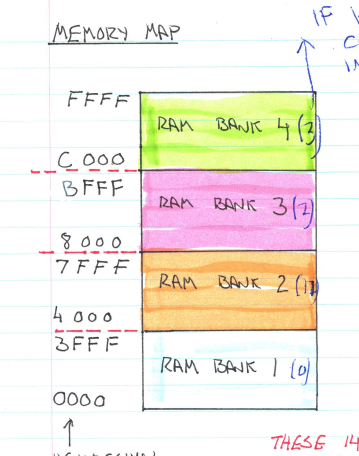 IF
MEMORY MAP
FFFF
RAM BANK 4 (3)
C000
BFFF
RAM BANK 3 (2)
8000
7FFF
RAM BANK 2 (1)
4000
3FFF
RAM BANK 1 (0)
0000
THESE 14